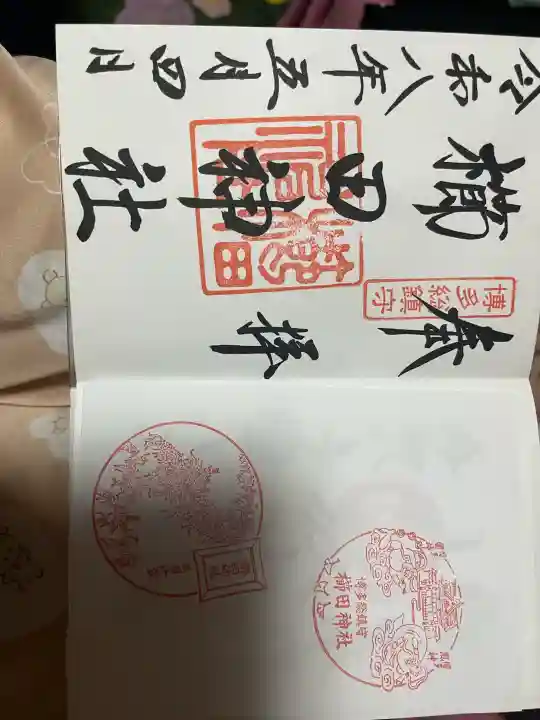 奉拝
博多総鎮守
櫛田神社
令和八年五月四日
博多総鎮守
櫛田神社
風神